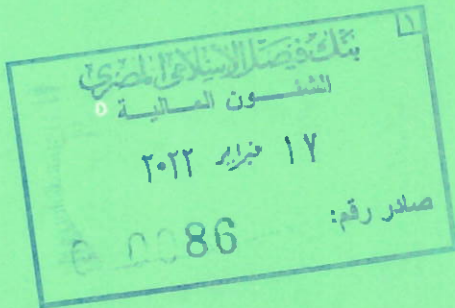 بنك فيصل الإسلامي المصري
الشئون المالية
١٧ فبراير ٢٠٢٢
صادر رقم:
0086